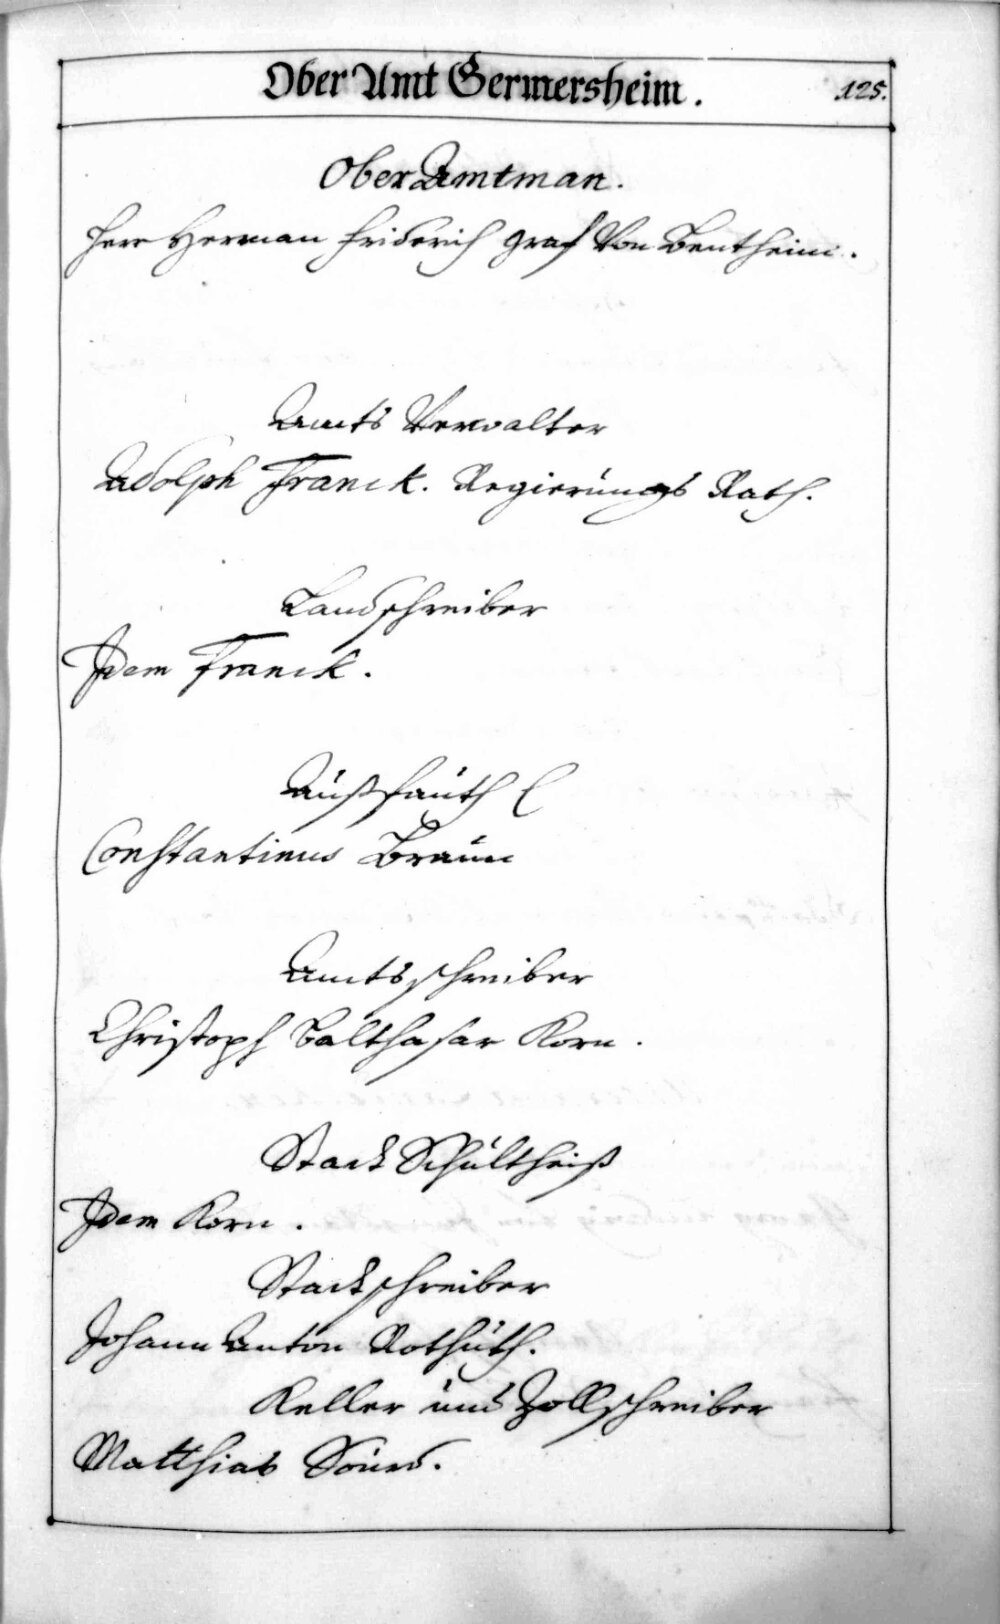 Ober Amt Germersheim.
125.
Ober Amtman.
Herr Herman Friderich Graf Von Bentheim.
Amts Verwalter
Adolph Franck. Regierungs Rath.
Landschreiber
Idem Franck.
Außfauth
Constantinus Braun
Amtsschreiber
Christoph Balthasar Korn.
Statt Schultheiß
Idem Korn.
Stattschreiber
Johann Anton Rothuth.
Keller und Zollschreiber
Matthias